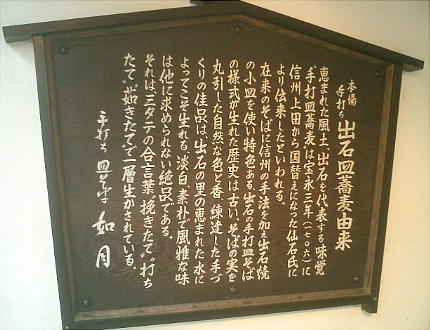 本場
手打ち
出石皿蕎麦由来
恵まれた風土、出石を代表する味覚
"手打皿蕎麦"は宝永三年(一七〇六)に
信州上田から国替えになった仙石氏に
より伝来したといわれる。
在来のそばに信州の手法を加え出石焼
の小皿を使い特色ある、出石の手打皿そば
の様式が生れた歴史は古い、そばの実を
丸引した自然な色と香、練達した手づ
くりの佳品は、出石の里の恵まれた水に
よってこそ生れる、淡白、素朴で風雅な味
は他に求められない絶品である。
それは、三タテの合言葉、挽きたて"打ち
たて"茹きたてで一層生かされている。
手打ち皿そば 如月